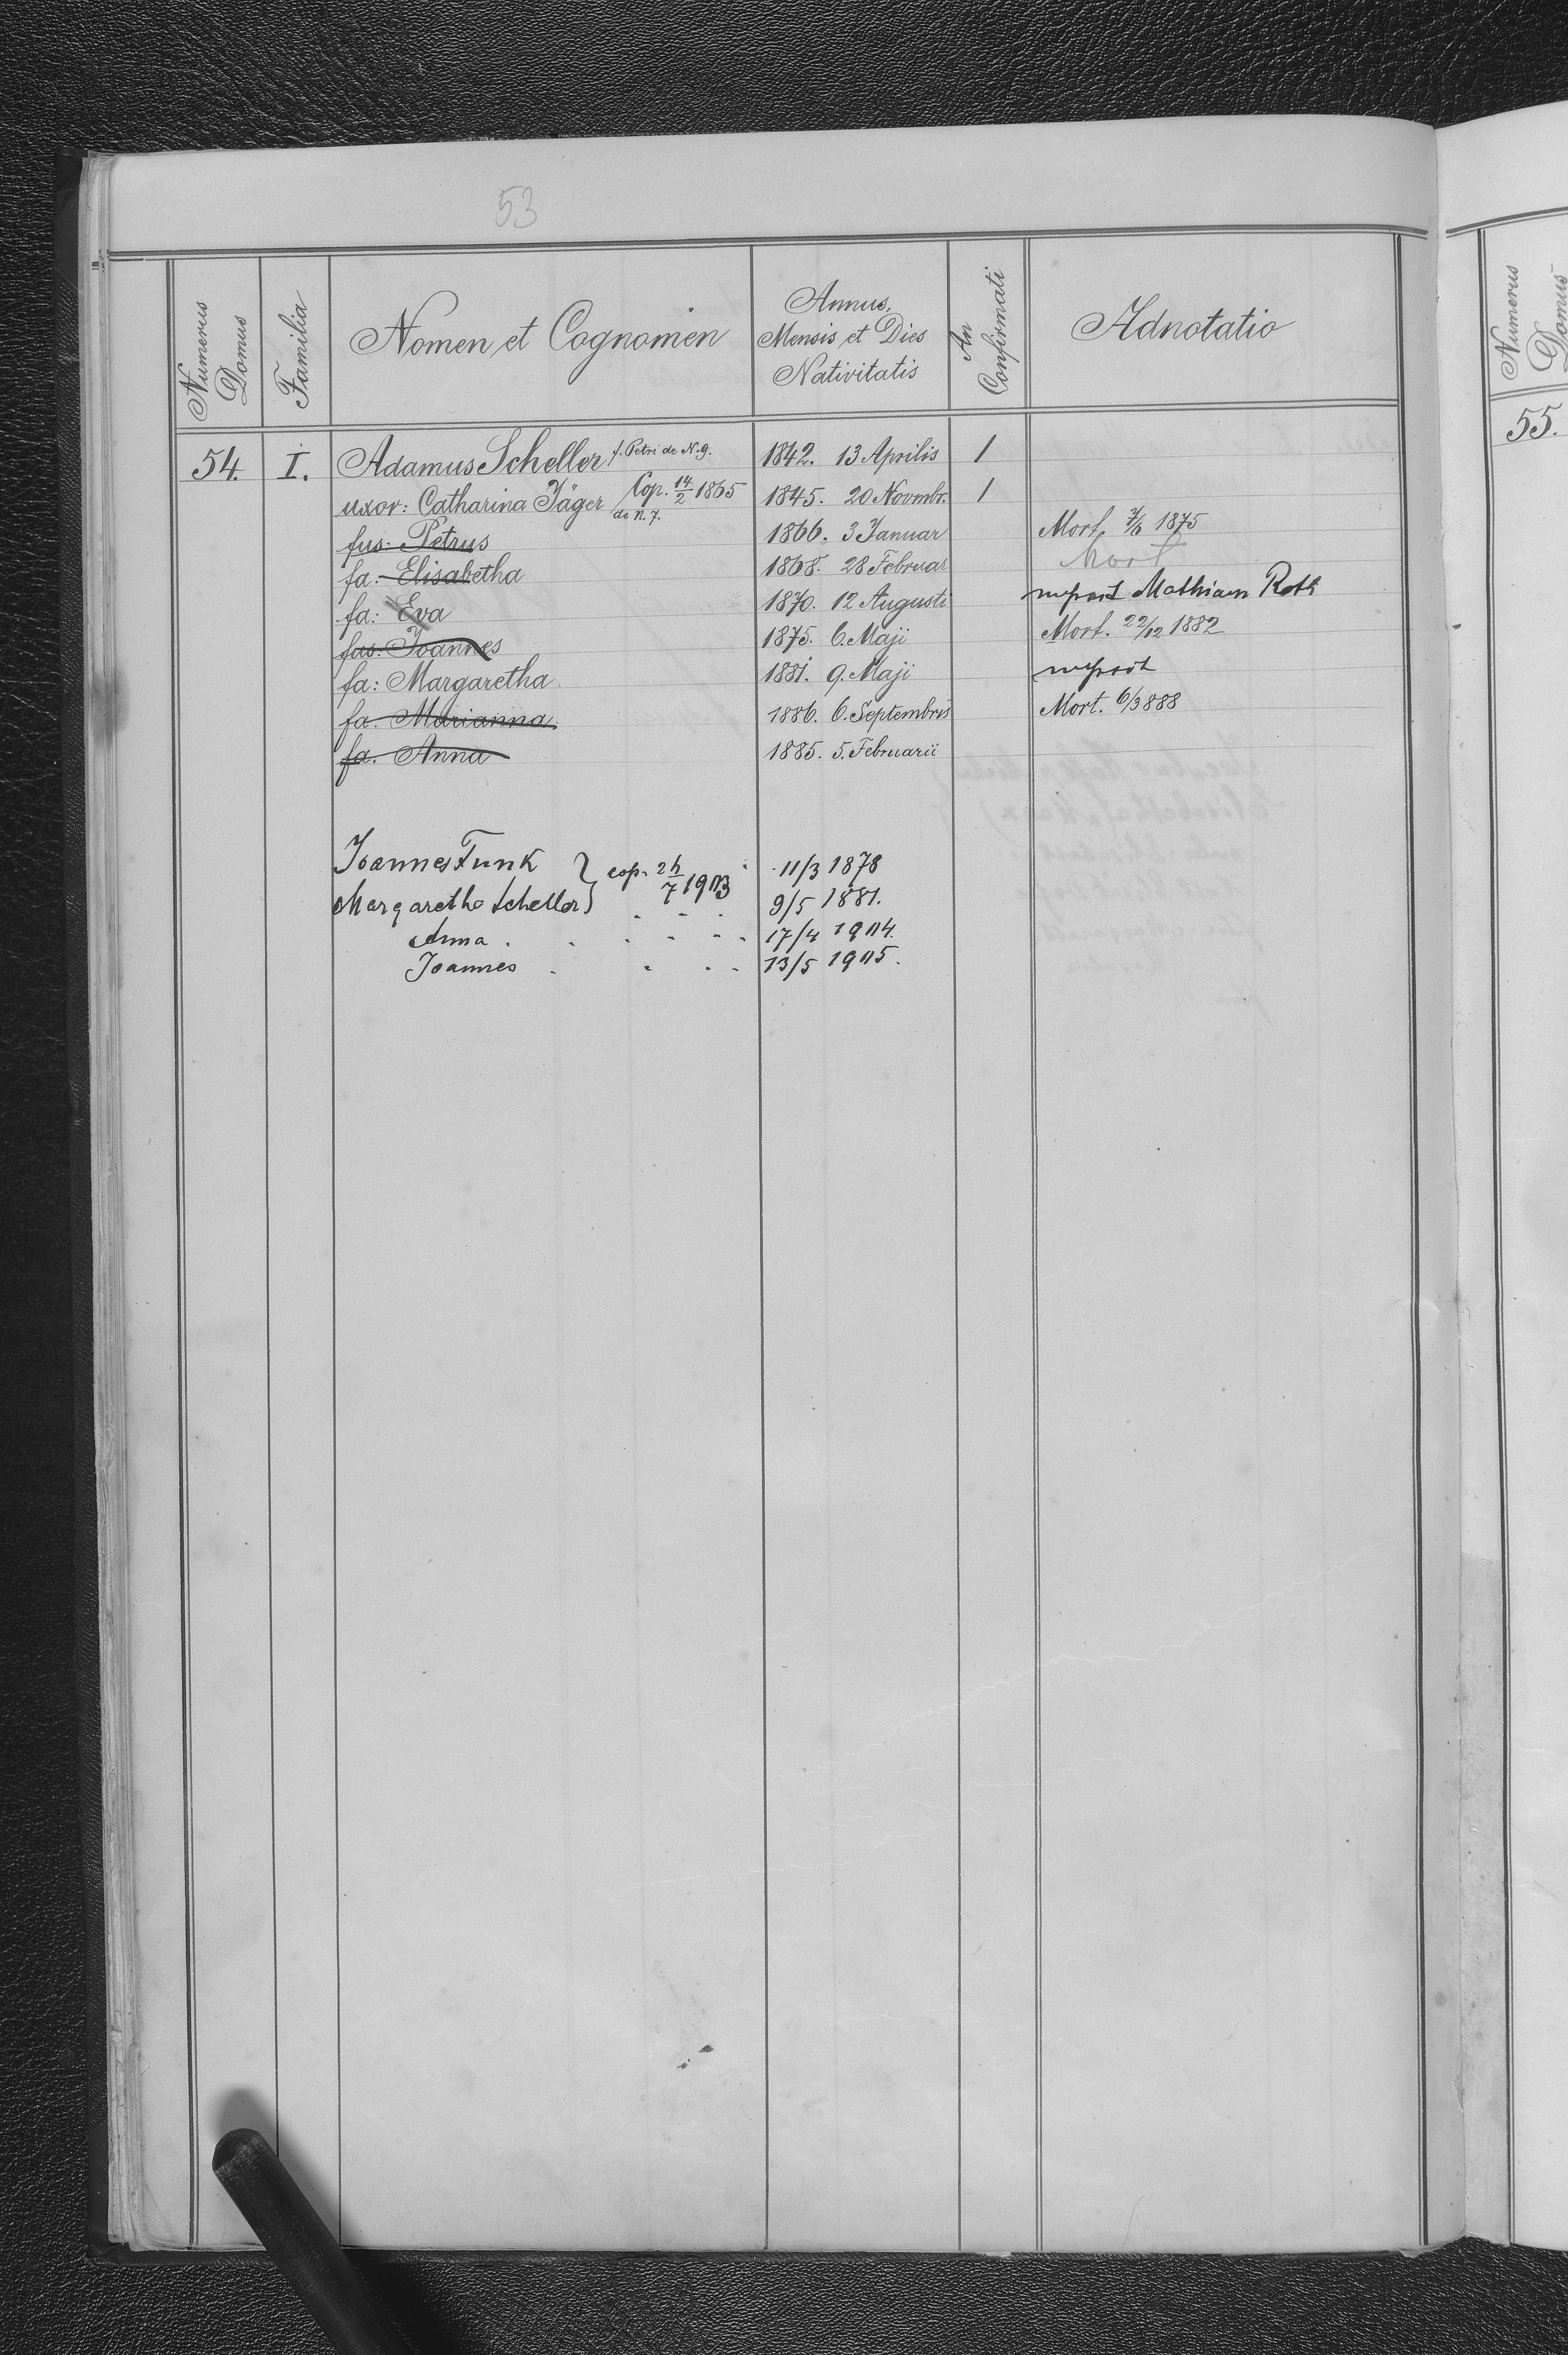 53
Numerus Domus
Familia
Nomen et Cognomen
Annus, Mensis et Dies Nativitatis
An Confirmati
Adnotatio
Numerus Domus
54. I. Adamus Scheller f. Petri de N. 9. 1842. 13 Aprilis 1
uxor: Catharina Jäger de N. 7. Cop. 14/2 1865 1845. 20 Novmbr. 1
fus: Petrus 1866. 3 Januar Mort. 1875
fa: Elisabetha 1868. 28 Februar Mort
fa: Eva 1870. 12 Augusti Mathiam Roth
fus: Joannes 1875. 6. Maji Mort. 22/12 1882
fa: Margaretha 1881. 9. Maji
fa: Marianna 1886. 6. Septembris Mort. 6/3 888
fa. Anna 1885. 5. Februarii
Joannes Funk 11/3 1878
Margaretha Scheller } cop. 7 1903 9/5 1881.
Anna . . . . . . 17/4 1904.
Joannes . . . . 13/5 1905.
55.